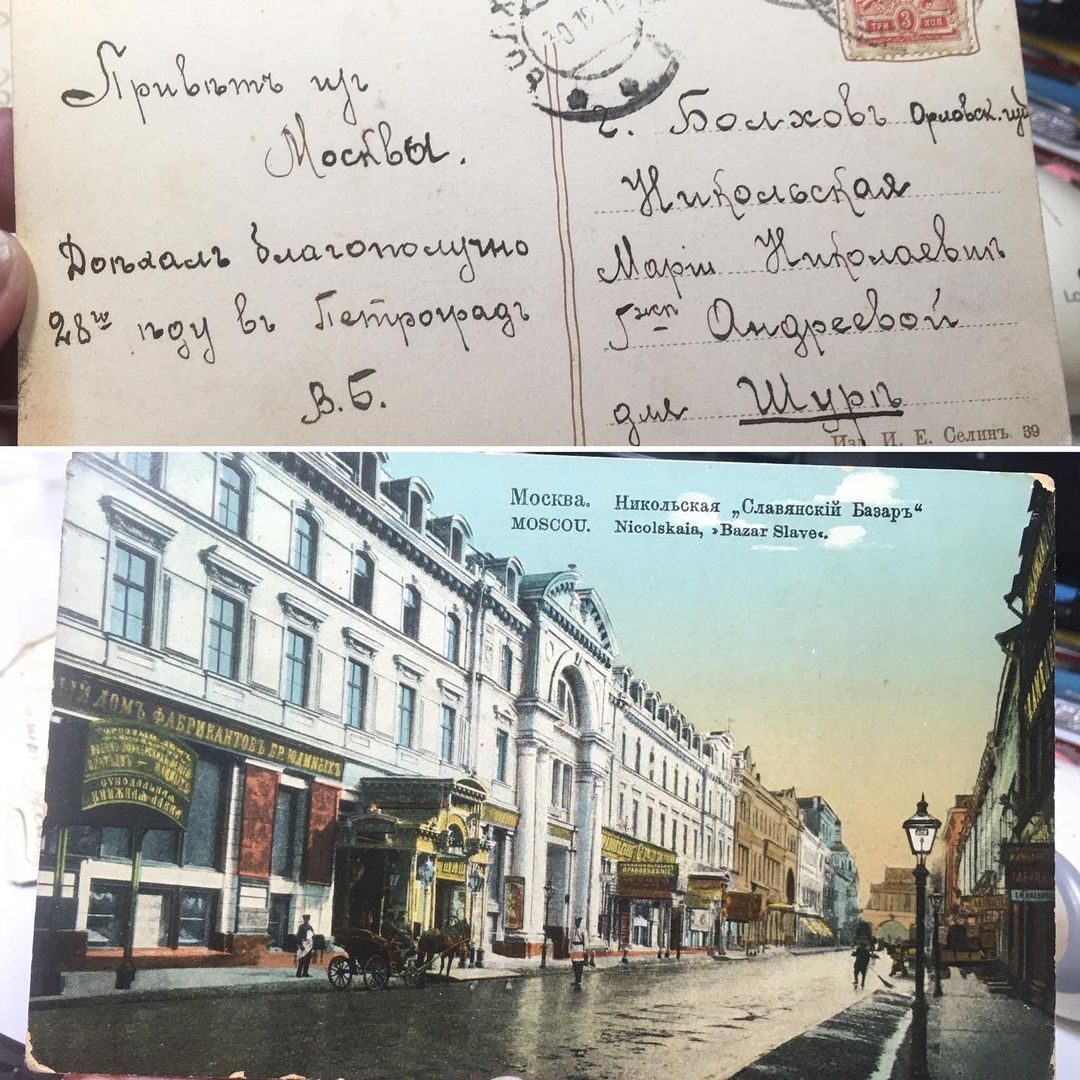 Привѣтъ изъ
Москвы.
Доѣхалъ благополучно
28го ѣду въ Петроградъ
В. Б.
ТРИ 3 КОП
г. Болховъ Орловск. губ
Никольская
Маріи Николаевнѣ
Гжѣ Андреевой
для Шуры
Изд. И. Е. Селинъ. 39
Москва. Никольская „Славянскій Базаръ“
MOSCOU. Nicolskaia, ›Bazar Slave‹.
ДОМЪ ФАБРИКАНТОВЪ БР.